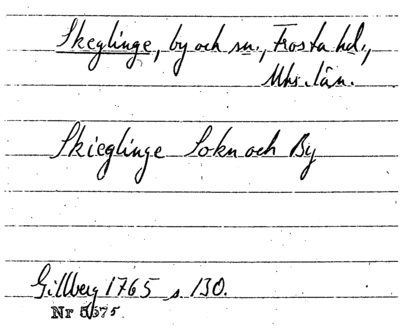 Skeglinge, by och sn., Frosta hd.,
Mhs. län.
Skieglinge Sokn och By
Gillberg 1765 s. 130.
Nr 5575